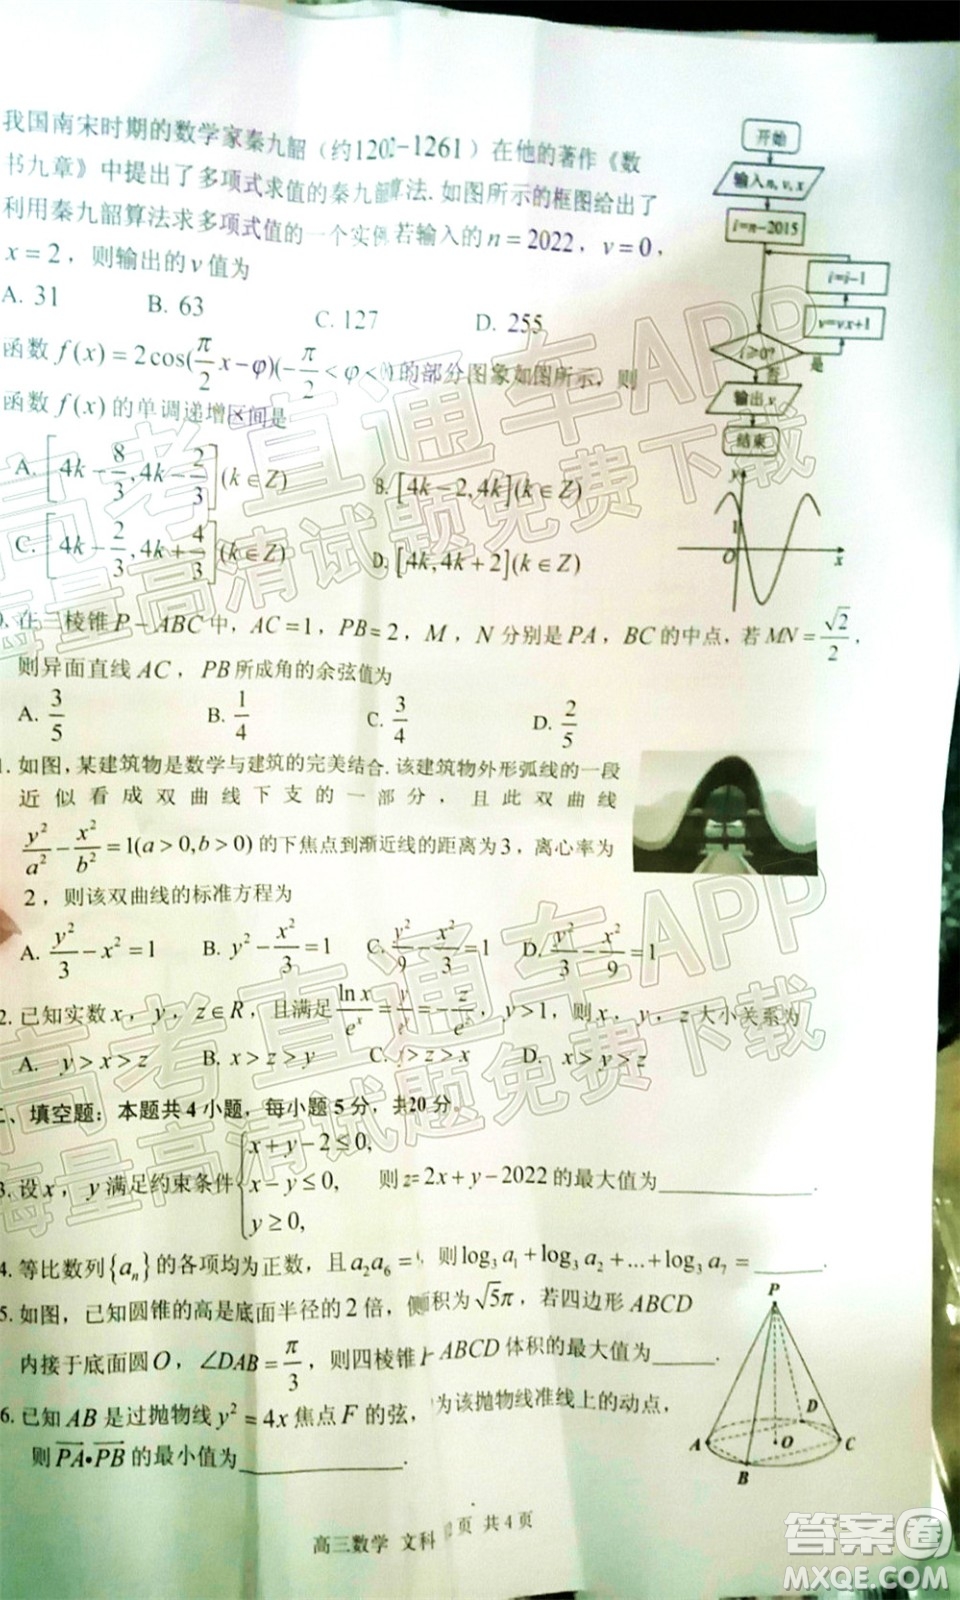 我国南宋时期的数学家秦九韶（约1202-1261）在他的著作《数
书九章》中提出了多项式求值的秦九韶算法.如图所示的框图给出了
利用秦九韶算法求多项式值的一个实例若输入的n=2022，v=0，
x=2，则输出的v值为
A. 31 B. 63 C. 127 D. 255
开始
输入n,v,x
i=n-2015
i=i-1
v=vx+1
i≥0?
是
否
输出v
结束
函数f(x)=2cos(π/2 x-φ)(-π/2<φ<0)的部分图象如图所示，则
函数f(x)的单调递增区间是
A. [4k-8/3,4k-2/3](k∈Z) B. [4k-2,4k](k∈Z)
C. [4k-2/3,4k+4/3](k∈Z) D. [4k,4k+2](k∈Z)
y
1
O
x
0. 在三棱锥P-ABC中，AC=1，PB=2，M，N分别是PA，BC的中点，若MN=√2/2，
则异面直线AC，PB所成角的余弦值为
A. 3/5 B. 1/4 C. 3/4 D. 2/5
1. 如图，某建筑物是数学与建筑的完美结合.该建筑物外形弧线的一段
近似看成双曲线下支的一部分，且此双曲线
y²/a²-x²/b²=1(a>0,b>0)的下焦点到渐近线的距离为3，离心率为
2，则该双曲线的标准方程为
A. y²/3-x²=1 B. y²-x²/3=1 C. y²/9-x²/3=1 D. y²/3-x²/9=1
2. 已知实数x，y，z∈R，且满足lnx/eˣ=y/eʸ=-z/eᶻ，y>1，则x，y，z大小关系为
A. y>x>z B. x>z>y C. y>z>x D. x>y>z
二、填空题：本题共4小题，每小题5分，共20分。
3. 设x，y满足约束条件{x+y-2≤0, x-y≤0, y≥0, 则z=2x+y-2022的最大值为________.
4. 等比数列{aₙ}的各项均为正数，且a₂a₆= 则log₃a₁+log₃a₂+...+log₃a₇=_____.
5. 如图，已知圆锥的高是底面半径的2倍，侧面积为√5π，若四边形ABCD
内接于底面圆O，∠DAB=π/3，则四棱锥P-ABCD体积的最大值为_____.
6. 已知AB是过抛物线y²=4x焦点F的弦，P为该抛物线准线上的动点，
则PA•PB的最小值为__________.
P
A
B
C
D
O
高三数学 文科 2页 共4页
高考直通车APP
海量高清试题免费下载
高考直通车APP
海量高清试题免费下载
答案圈
MXQE.COM